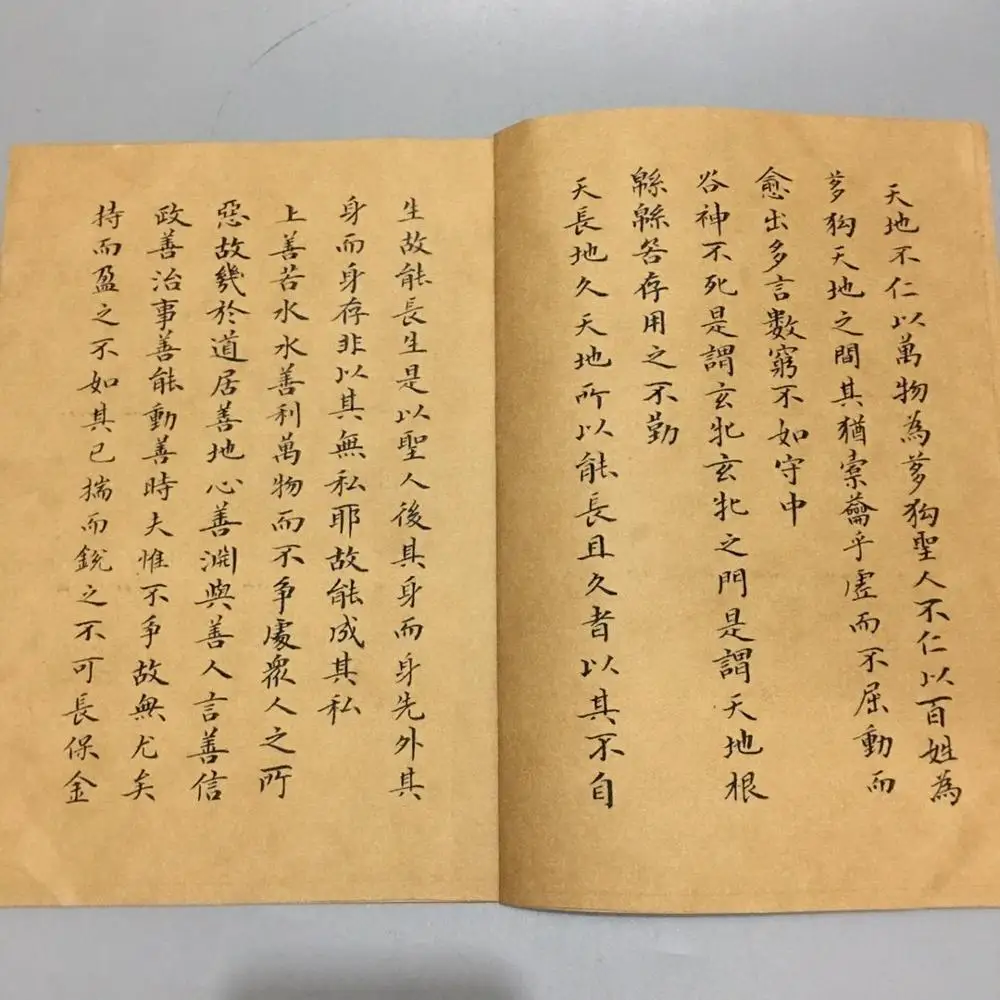 天地不仁以萬物為芻狗聖人不仁以百姓為
芻狗天地之間其猶橐籥乎虛而不屈動而
愈出多言數窮不如守中
谷神不死是謂玄牝玄牝之門是謂天地根
緜緜若存用之不勤
天長地久天地所以能長且久者以其不自
生故能長生是以聖人後其身而身先外其
身而身存非以其無私耶故能成其私
上善若水水善利萬物而不争處衆人之所
惡故幾於道居善地心善淵與善人言善信
政善治事善能動善時夫惟不争故無尤矣
持而盈之不如其已揣而銳之不可長保金